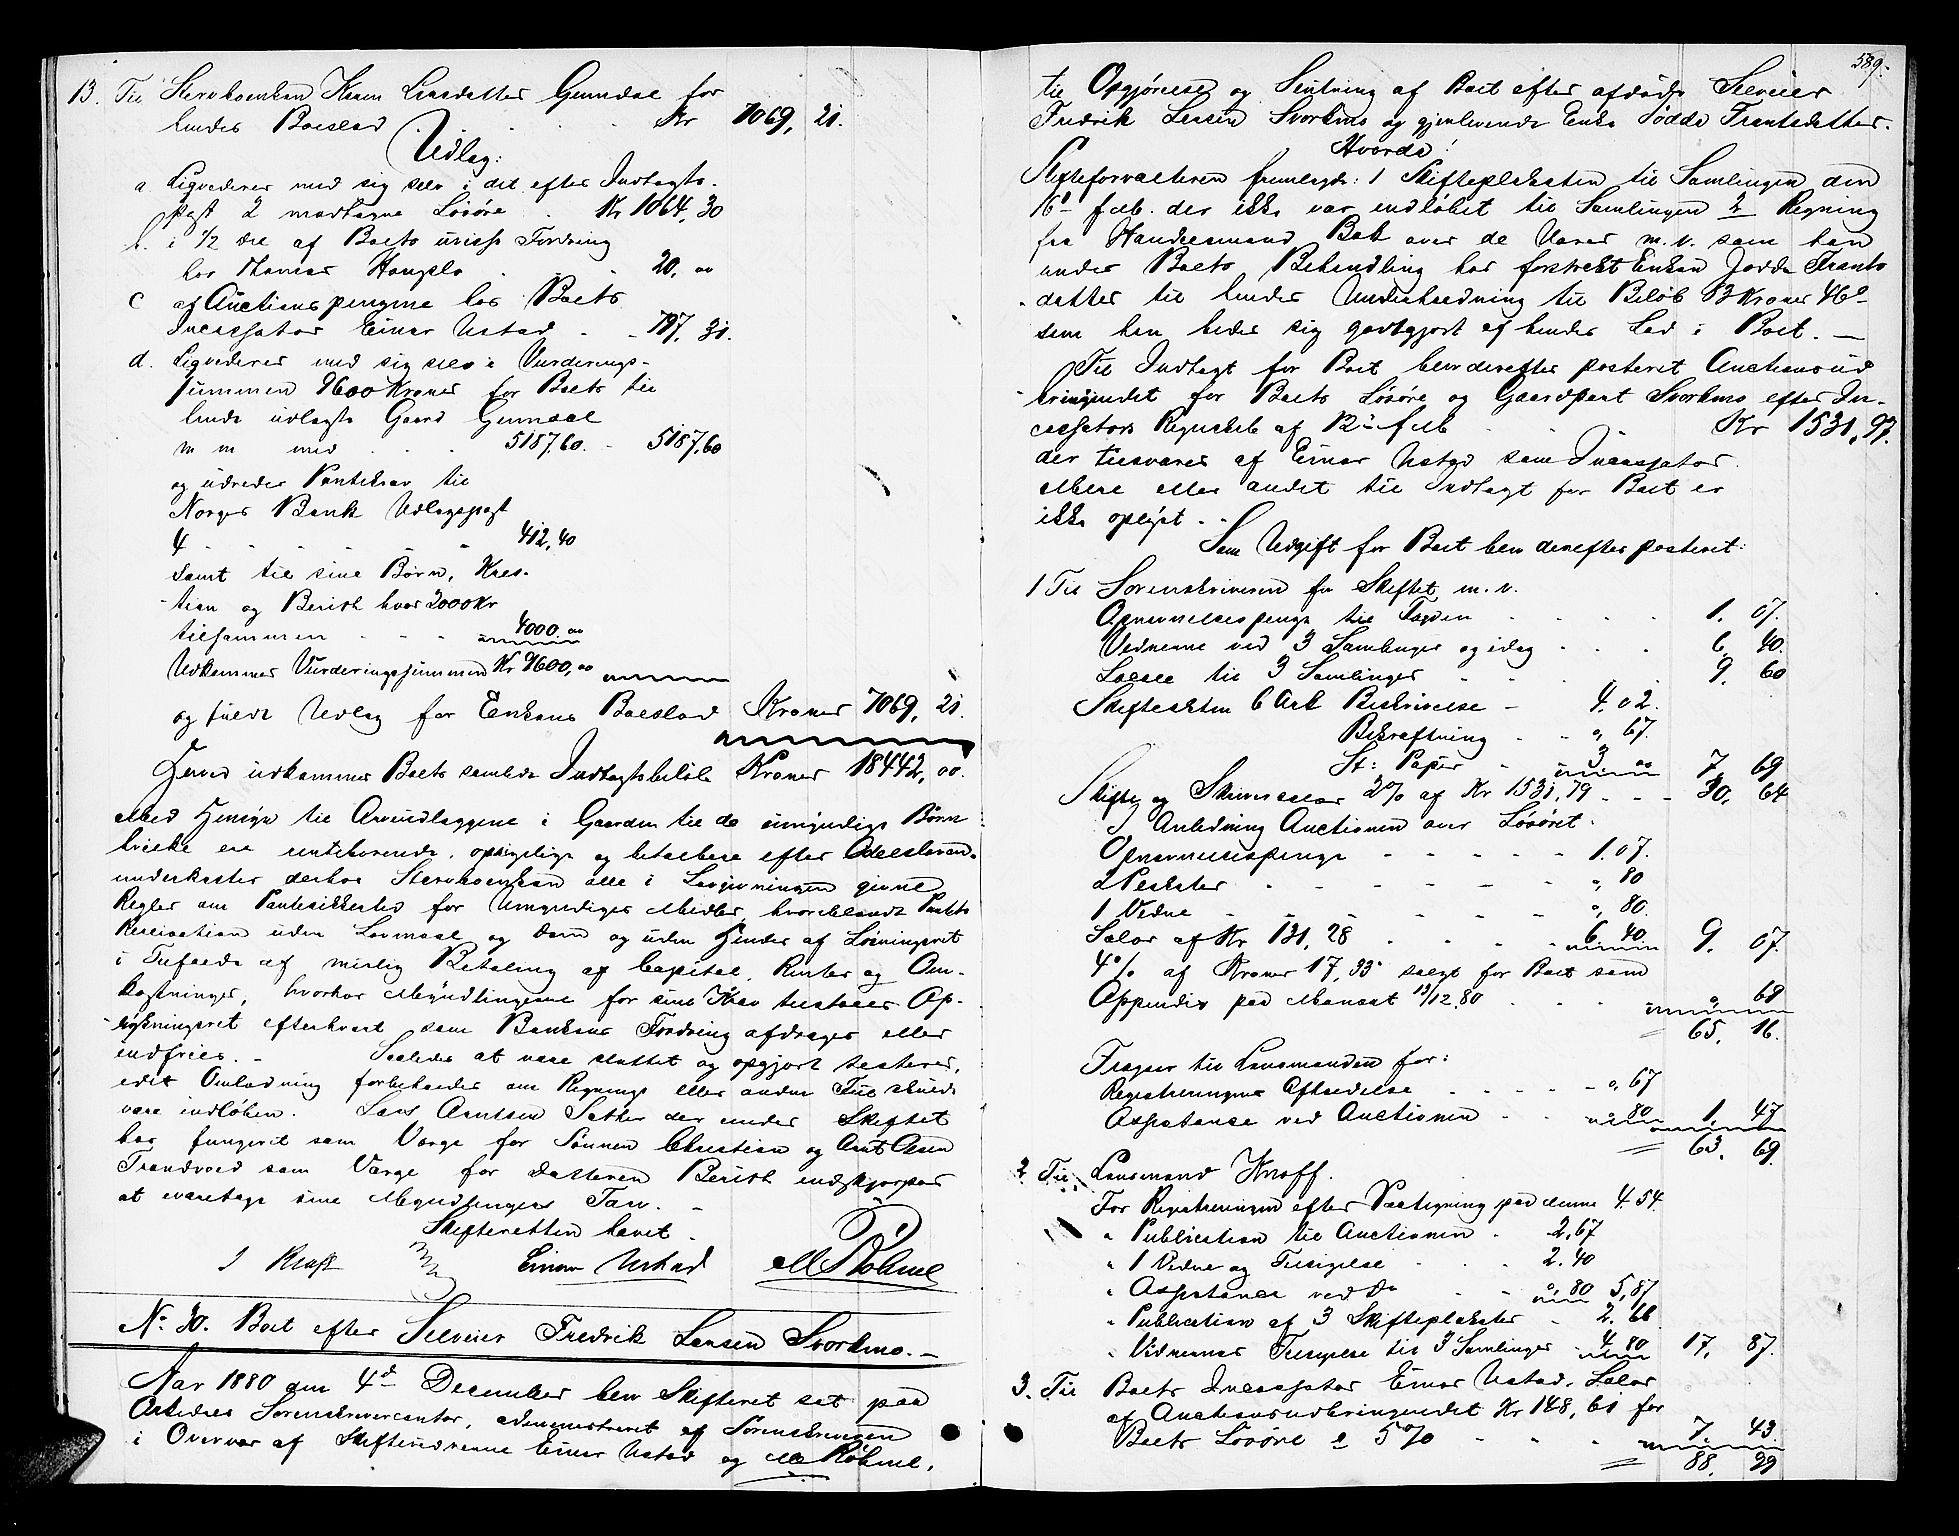 13. Til Stervboenken Karen Larsdatter Grindal for
hendes Boeslod . . . . Kr 7069, 21.
Udlag:
a. Ligvederer med sig selv i det efter Indtægts-
post 2 modtagne Løsøre . Kr 1064, 30
b. i 1/2 Del af Boets Fordring
hos Haugly . . . 20, 00
c af Auctionspengene hos Boets
Incassator Einar Ustad . . 797, 31.
d. Ligvederer med sig selv i Vurderings-
summen 9600 Kroner for Boets til
hende udlagte Gaard Grindal
m m med . . . 5187,60. - 5187,60
og udreder Pantekrav til
Norges Bank Udlægspost
4 . . . . . . 412,40
samt til sine Børn, Kres-
tian og Berith hver 2000 Kr
tilsammen . . . 4000.00
Udkommer Vurderingssummen Kr 9600,00
og fuldt Udlæg for Enkens Boeslod Kroner 7069, 21.
Herved udkommer Boets samlede Indtægtsbeløb Kroner 18442, 00.
Med Hensyn til Arveudlæggene i Gaarden til de umyndige Børn
hvilke ere rentebærende, opsigelige og betalbare efter Odelsloven
underkaster derhos Stervboenken alle i Lovgivningen givne
Regler om Pantesikkerhed for Umyndiges Midler, hvoriblandt Pantets
Realisation uden Lovmaal og Dom og uden Hinder af Løsningsret
i Tilfælde af mislig Betaling af Capital, Renter og Om-
kostninger, hvorhos Myndlingerne for sine Krav tilstaaes Op-
rykningsret efterhvert som Bankens Fordring afdrages eller
indfries. - Saaledes at være sluttet og opgjort testeres,
idet Omladning forbeholdes om Regnings eller anden Feil skulde
være indløben. Lars Arntsen Sæther der under Skiftet
har fungeret som Værge for Sønnen Christian og Arnt Olsen
Trandvold som Værge for Datteren Berith
at varetage sine Myndlingers Tarv. -
Skifteretten hævet.
Einar Ustad M Røhme
No 30. Boet efter Selveier Fredrik Larsen Svorkmo. -
Aar 1880 den 4de December blev Skifteret sat paa
Orkedals Sorenskrivercontor, administreret af Sorenskriveren
i Overvær af Skiftevidnerne Einar Ustad og M Røhme,
589.
til Opgjørelse og Slutning af Boet efter afdøde Selveier
Fredrik Larsen Svorkmo og gjenlevende Enke Jødde Frantsdatter.
Hvorda!
Skifteforvalteren fremlagde: 1 Skifteplakaten til Samlingen den
16de f.Mb. der ikke var endløbet til Samlingen 2 Regning
fra Handelsmand Bak over de Varer m.v. som han
under Boets Behandling har forstrekt Enken Jødde Frants-
datter til hendes Underholdning til Beløb 13 Kroner 46 o
som han beder sig godtgjort af hendes Lod i Boet. -
Til Indtægt for Boet blev derefter posteret Auctionsud-
bringendet for Boets Løsøre og Gaardpart Svorkmo efter In-
cassators Regnskab af 12te f.Mb . . . Kr 1531, 97.
der tilsvares af Einar Ustad som Incassator.
Mere eller andet til Indtægt for Boet er
ikke oplyst . -
Som Udgift for Boet blev derefter posteret:
1 Til Sorenskriveren for Skiftet m. v.
Opnævnelsespenge til Fogden . . . . 1. 07.
Vidnerne ved 3 Samlinger og idag . . . 6. 40.
Løfte til 3 Samlinger . . . . 9. 60
Skifteakten 6 Ark Beskrivelse - 4. 02.
Bekræftning . . 0, 67.
St: Papir . 3 00 7, 69
Skifte og Skriversalær 2% af Kr 1531, 79 . . - 30. 64
I Anledning Auctionen over Løsøret.
Opnævnelsespenge . . . . . 1.07.
2 Plakater . . . . . . 0, 80
1 Vidne . . . . . . 0, 80.
Salær af Kr 131, 28 . . . . 6. 40 9. 07.
4% af Kroner 17, 33 solgt for Boet som
Appendix paa Mønsat 13/12.80 . . . 0, 69
65. 16.
Fragaar til Lensmanden for:
Registreringens Afholdelse . . . . - 0, 67
Assistance ved Auctionen . . . 0 80 1, 47
63. 69.
2 Til Lensmand Knoff.
For Registreringen efter Paategning paa denne 4. 54.
" Publication til Auctionen . 2,67
" 1 Vidne og Tilsigelse . . . 2.40
" Assistance ved Do . . 0, 80 5,87
" Publication af 3 Skifteplakater . 2. 66
" Vidnernes Tilsigelse til 3 Samlinger - 4 80 17, 87.
3. Til Boets Incassator Einar Ustad. Salær
af Auctionsudbringendet Kr 148, 61 for
Boets Løsøre a 5% . . . . 7. 43.
88. 99